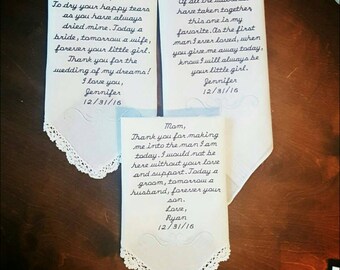 To dry your happy tears
as you have always
dried mine. Today a
bride, tomorrow a wife,
forever your little girl.
Thank you for the
wedding of my dreams!
I love you,
Jennifer
12/31/16
have taken together
this one is my
favorite. As the first
man I ever loved, when
you give me away today,
know I will always be
your little girl.
Jennifer
12/31/16
Mom,
Thank you for making
me into the man I am
today. I would not be
here without your love
and support. Today a
groom, tomorrow a
husband, forever your
son.
Love,
Ryan
12/31/16